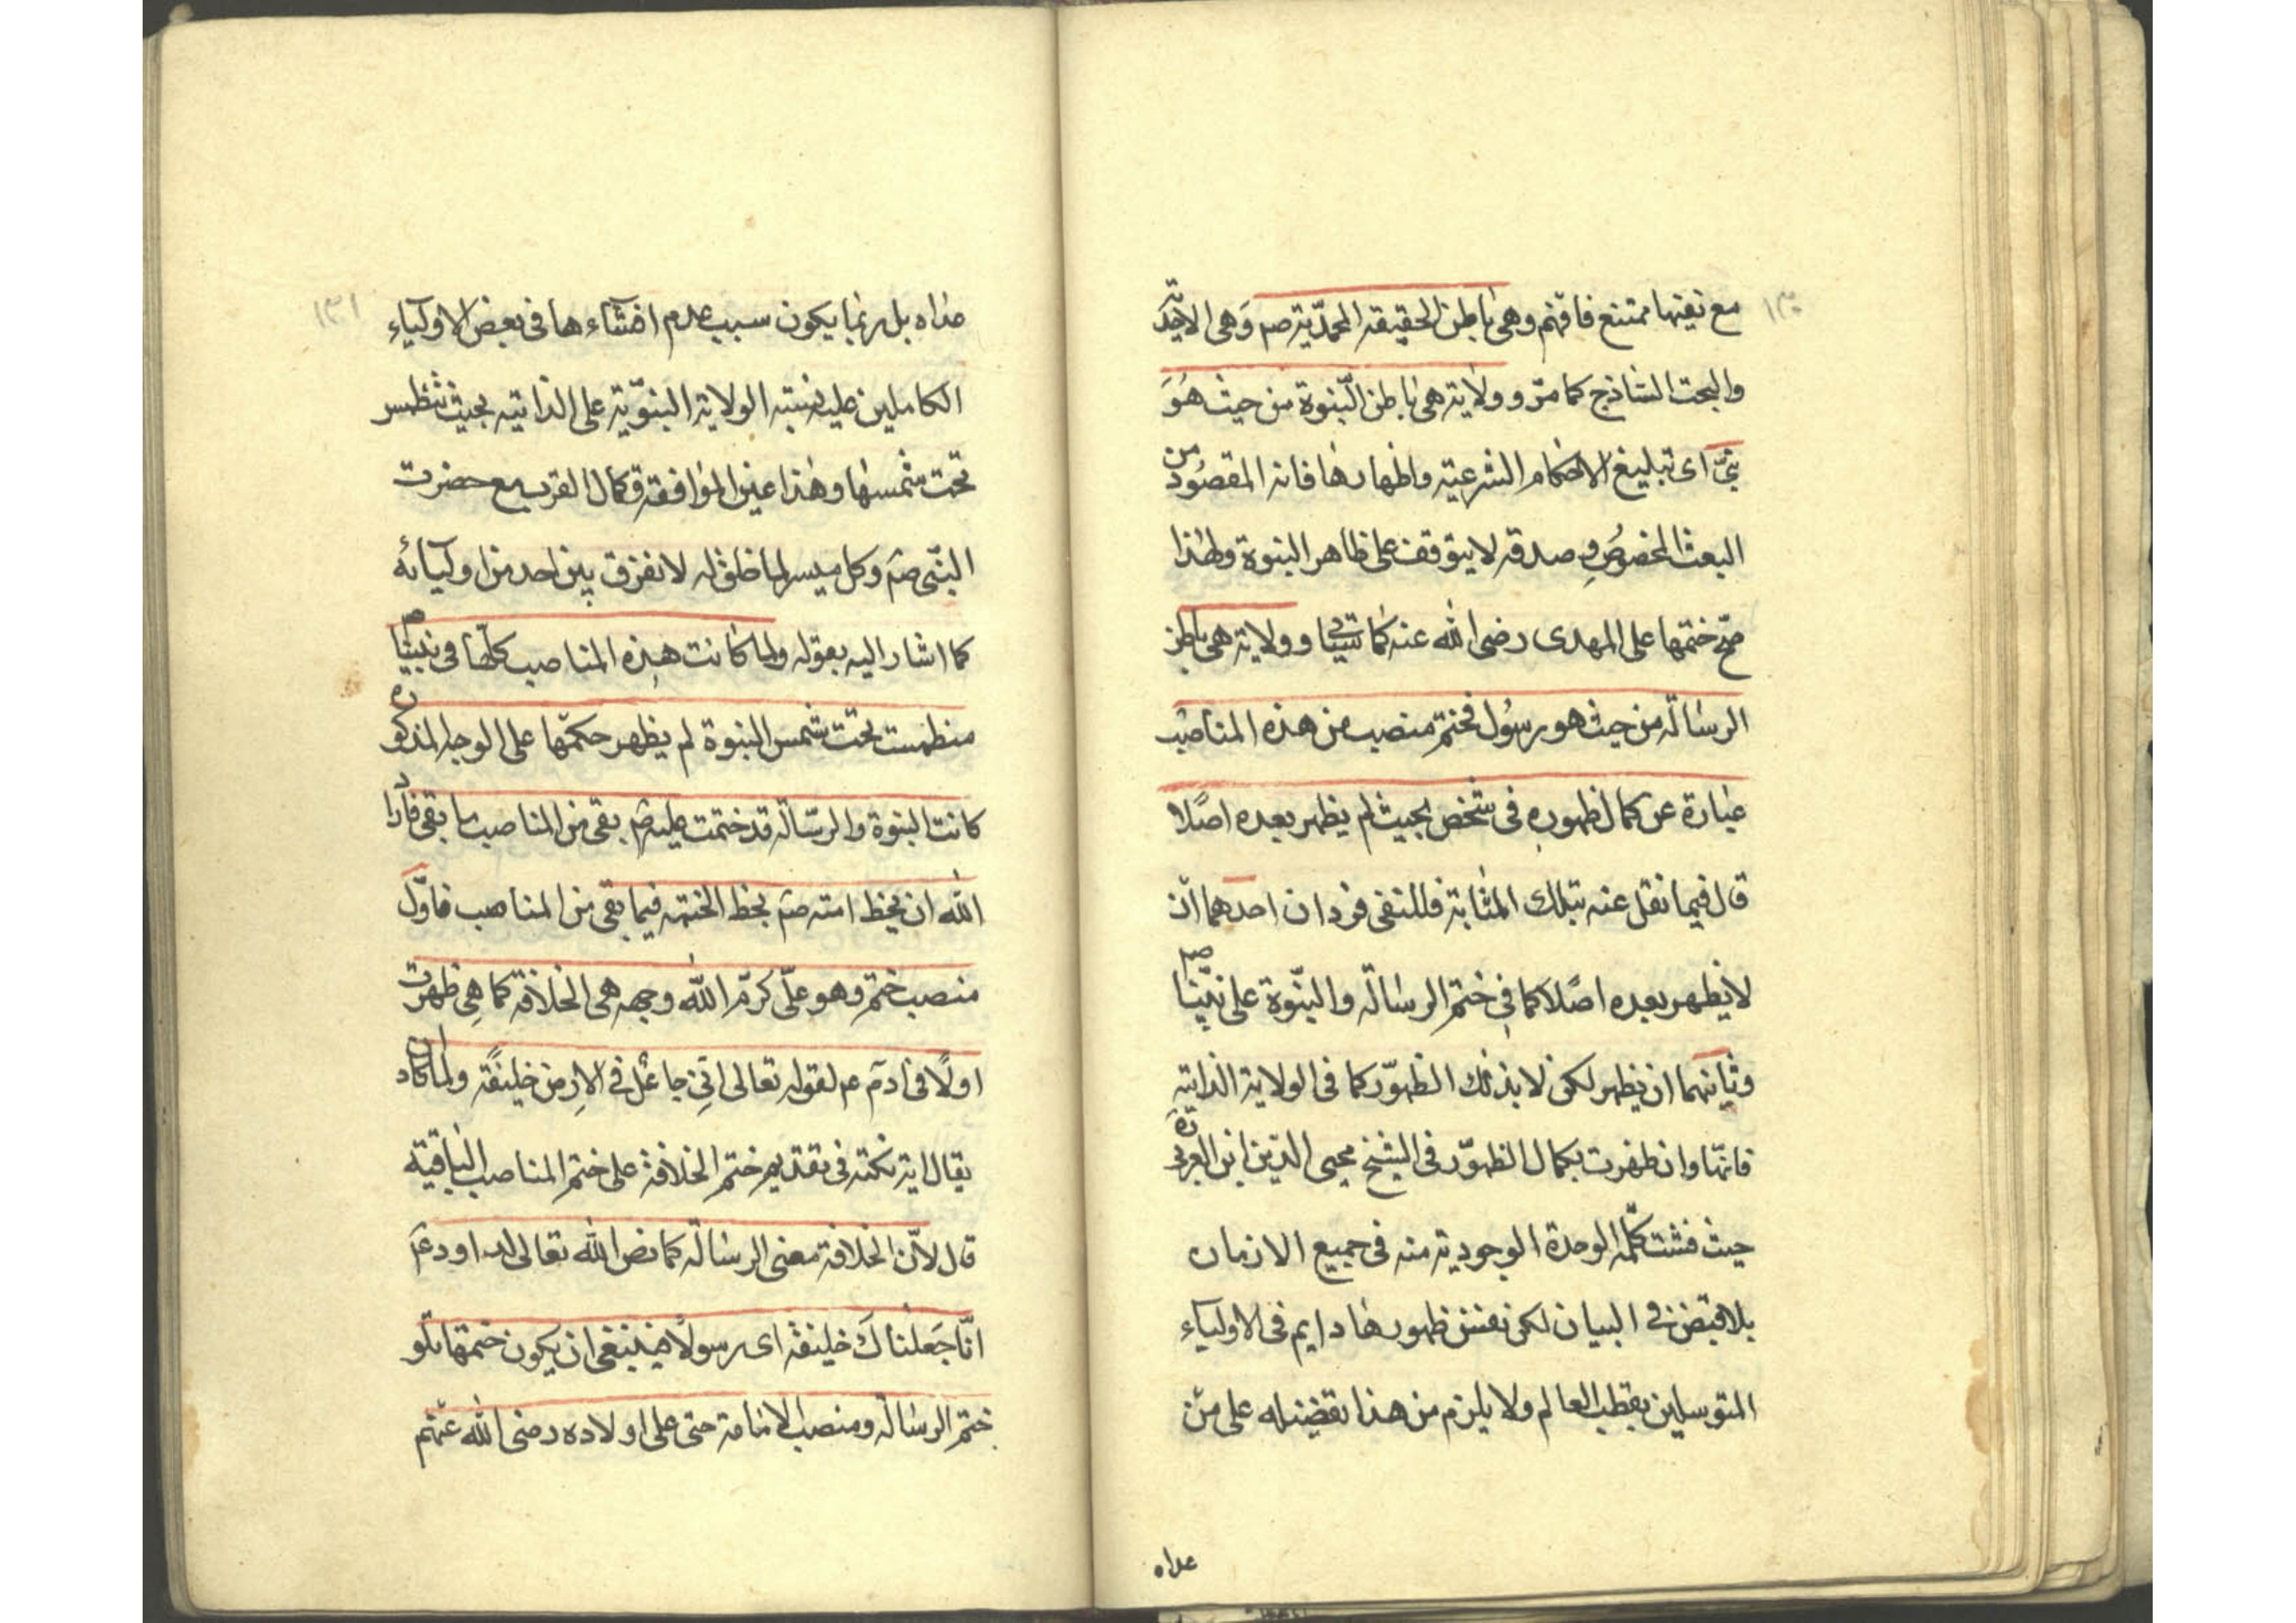 ١٣٠
مع نعيتها ممتنع فافهم وهى باطن الحقيقة المحمّدية صم وهى الاحديّة
والبحت الساذج كما مرّ وولاية هى باطن النّبوة من حيث هو
نبىّ اى تبليغ الاحكام الشرعية واظهارها فانه المقصود من
البعث المخصوص وصدقه لا يتوقف على ظاهر النبوة ولهذا
صحّ ختمها على المهدى رضى الله عنه كما سيجيئ وولاية هى باطن
الرسالة من حيث هو رسول فختم منصب من هذه المناصب
عبارة عن كمال ظهوره فى شخص بحيث لم يظهر بعده اصلا
قال فيما نقل عنه بتلك المثابة فللنفى فردان احدهما ان
لا يظهر بعده اصلا كما فى ختم الرسالة والنبّوة على نبيّنا صم
وثانيهما ان يظهر لكن لا بذلك الظهور كما فى الولاية الذاتية
فانّها وان ظهرت بكمال الظهور فى الشيخ محيى الدين ابن العربى قه
حيث فشت كلمة الوحدة الوجودية منه فى جميع الازمان
بلا قبض فى البيان لكن نفس ظهورها دايم فى الاولياء
المتوسلين بقطب العالم ولا يلزم من هذا تفضيله على من
عداه
١٣١
عداه بل ربما يكون سبب عدم افشاء ها فى بعض الاولياء
الكاملين غلبة نسبة الولاية النبوّية على الذاتية بحيث تنطمس
تحت شمسها وهذا عين الموافقة وكمال القرب مع حضرت
النبّى صم وكل ميسر لما خلق له لا نفرق بين احد من اوليائه
كما اشار اليه بقوله ولما كانت هذه المناصب كلّها فى نبينا صم
منطمست تحت شمس النبوة لم يظهر حكمها على الوجه المذكور
كانت النبوة والرسالة قد ختمت عليه صم بقى من المناصب ما بقى فاراد
الله ان يحظ امته صم بحظ الختمة فيما بقى من المناصب فاوّل
منصب ختم وهو علّى كرّم الله وجهه هى الخلافة كما هى ظهرت
اولًا فى ادم عم لقوله تعالى انّى جاعل فى الارض خليفة ولما كاد ان
يقال اية نكتة فى تقديم ختم الخلافة على ختم المناصب الباقية
قال لانّ الخلافة معنى الرسالة كما نص الله تعالى لداود عم
انّا جعلناك خليفة اى رسولا فينبغى ان يكون ختمها تلو
ختم الرسالة ومنصب الامامة حتى على اولاده رضى الله عنهم